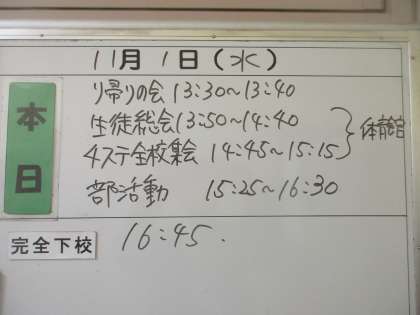 11月1日(水)
本日
り帰りの会 13:30~13:40
生徒総会 13:50~14:40
4ステ全校集会 14:45~15:15
体育館
部活動 15:25~16:30
完全下校 16:45.